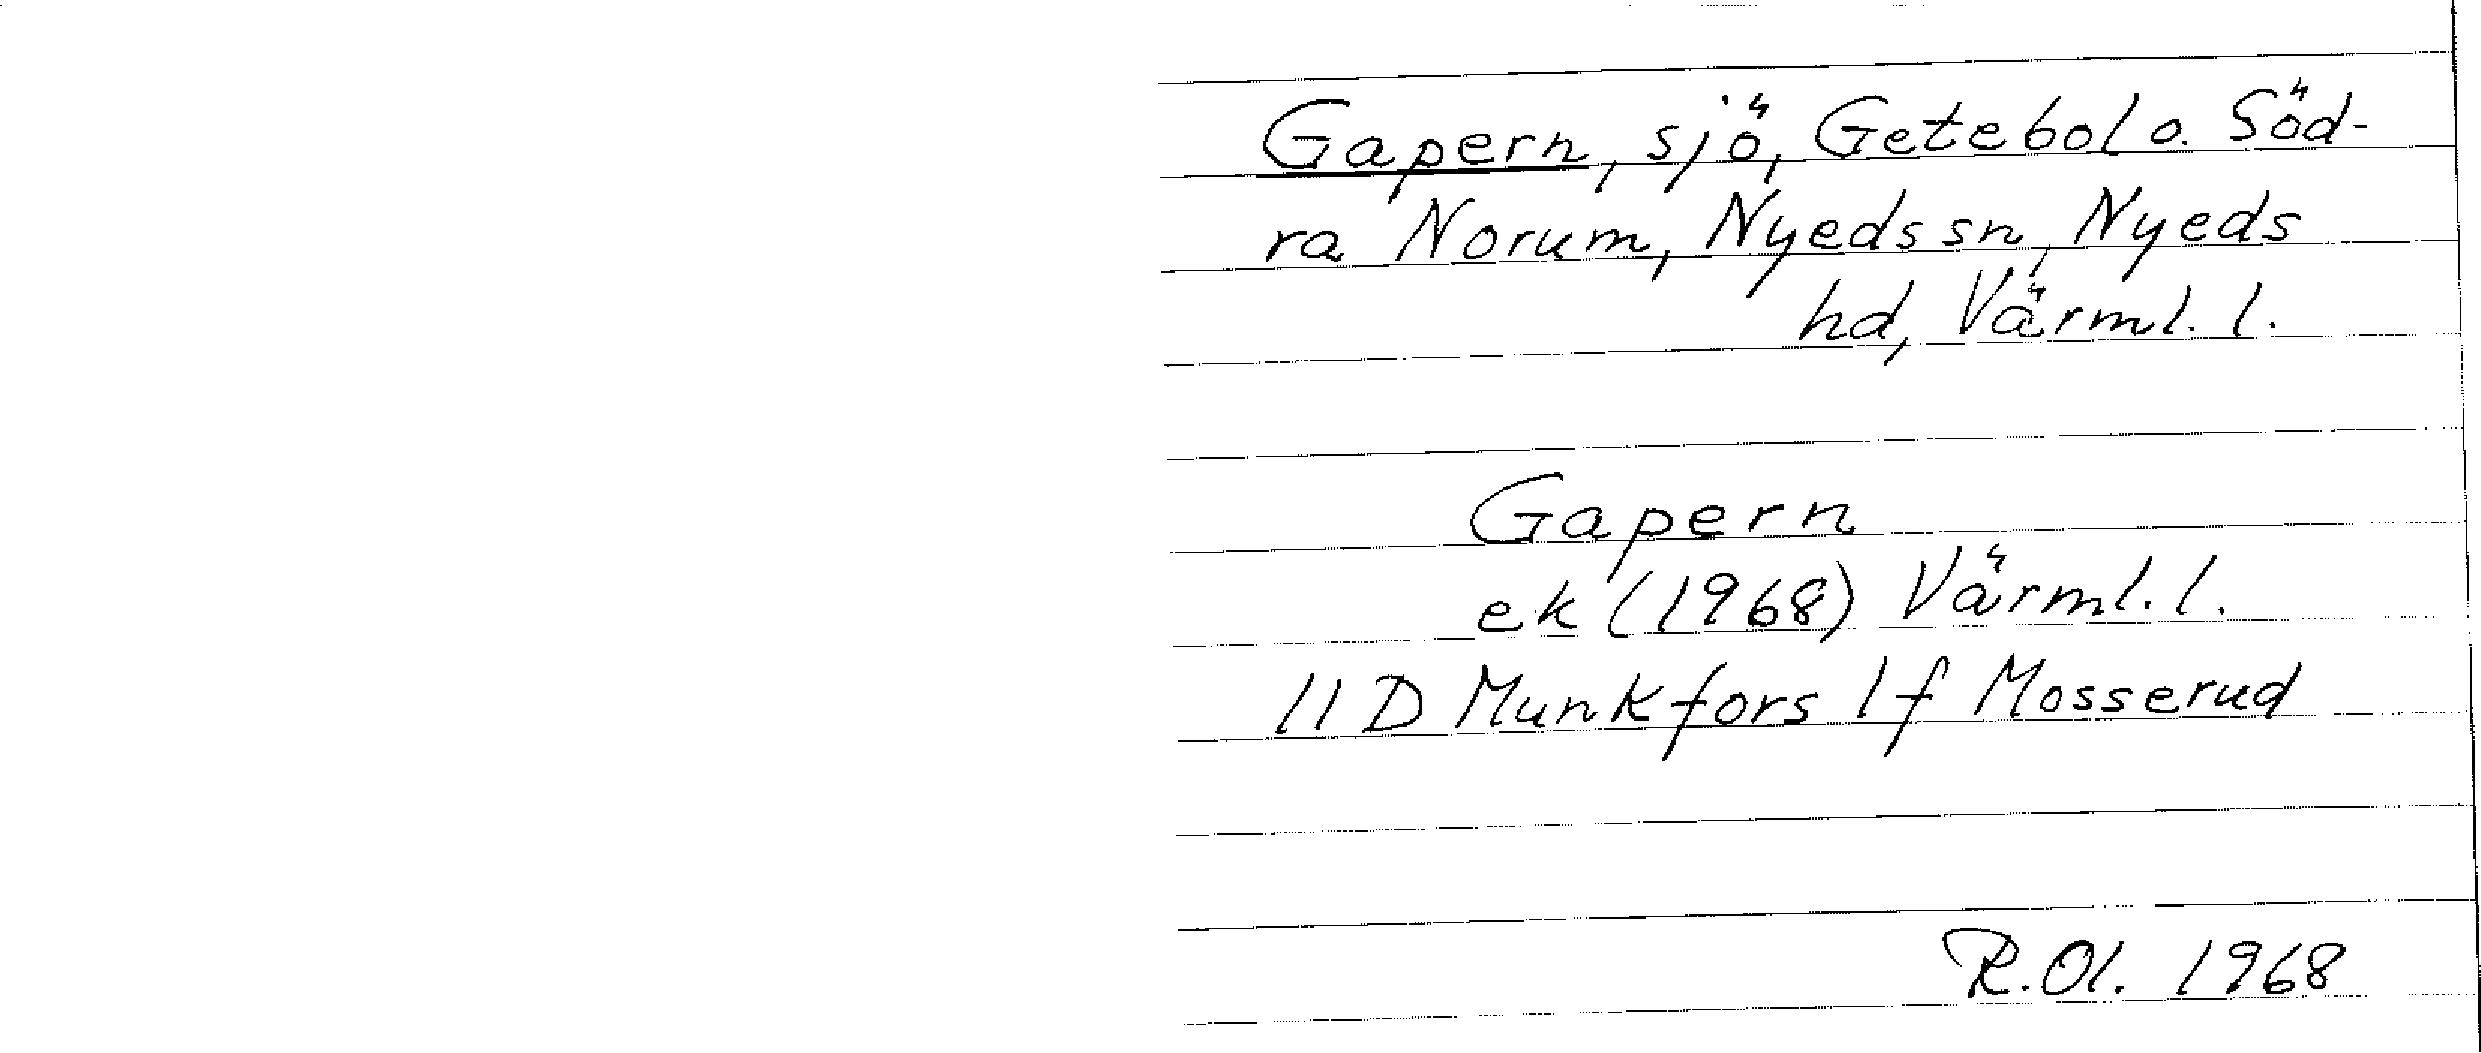 Gapern, sjö, Getebol o. Söd-
ra Norum, Nyeds sn, Nyeds
hd, Värml. l.
Gapern
ek (1968) Värml. l.
11 D Munkfors 1f Mosserud
R.Ol. 1968